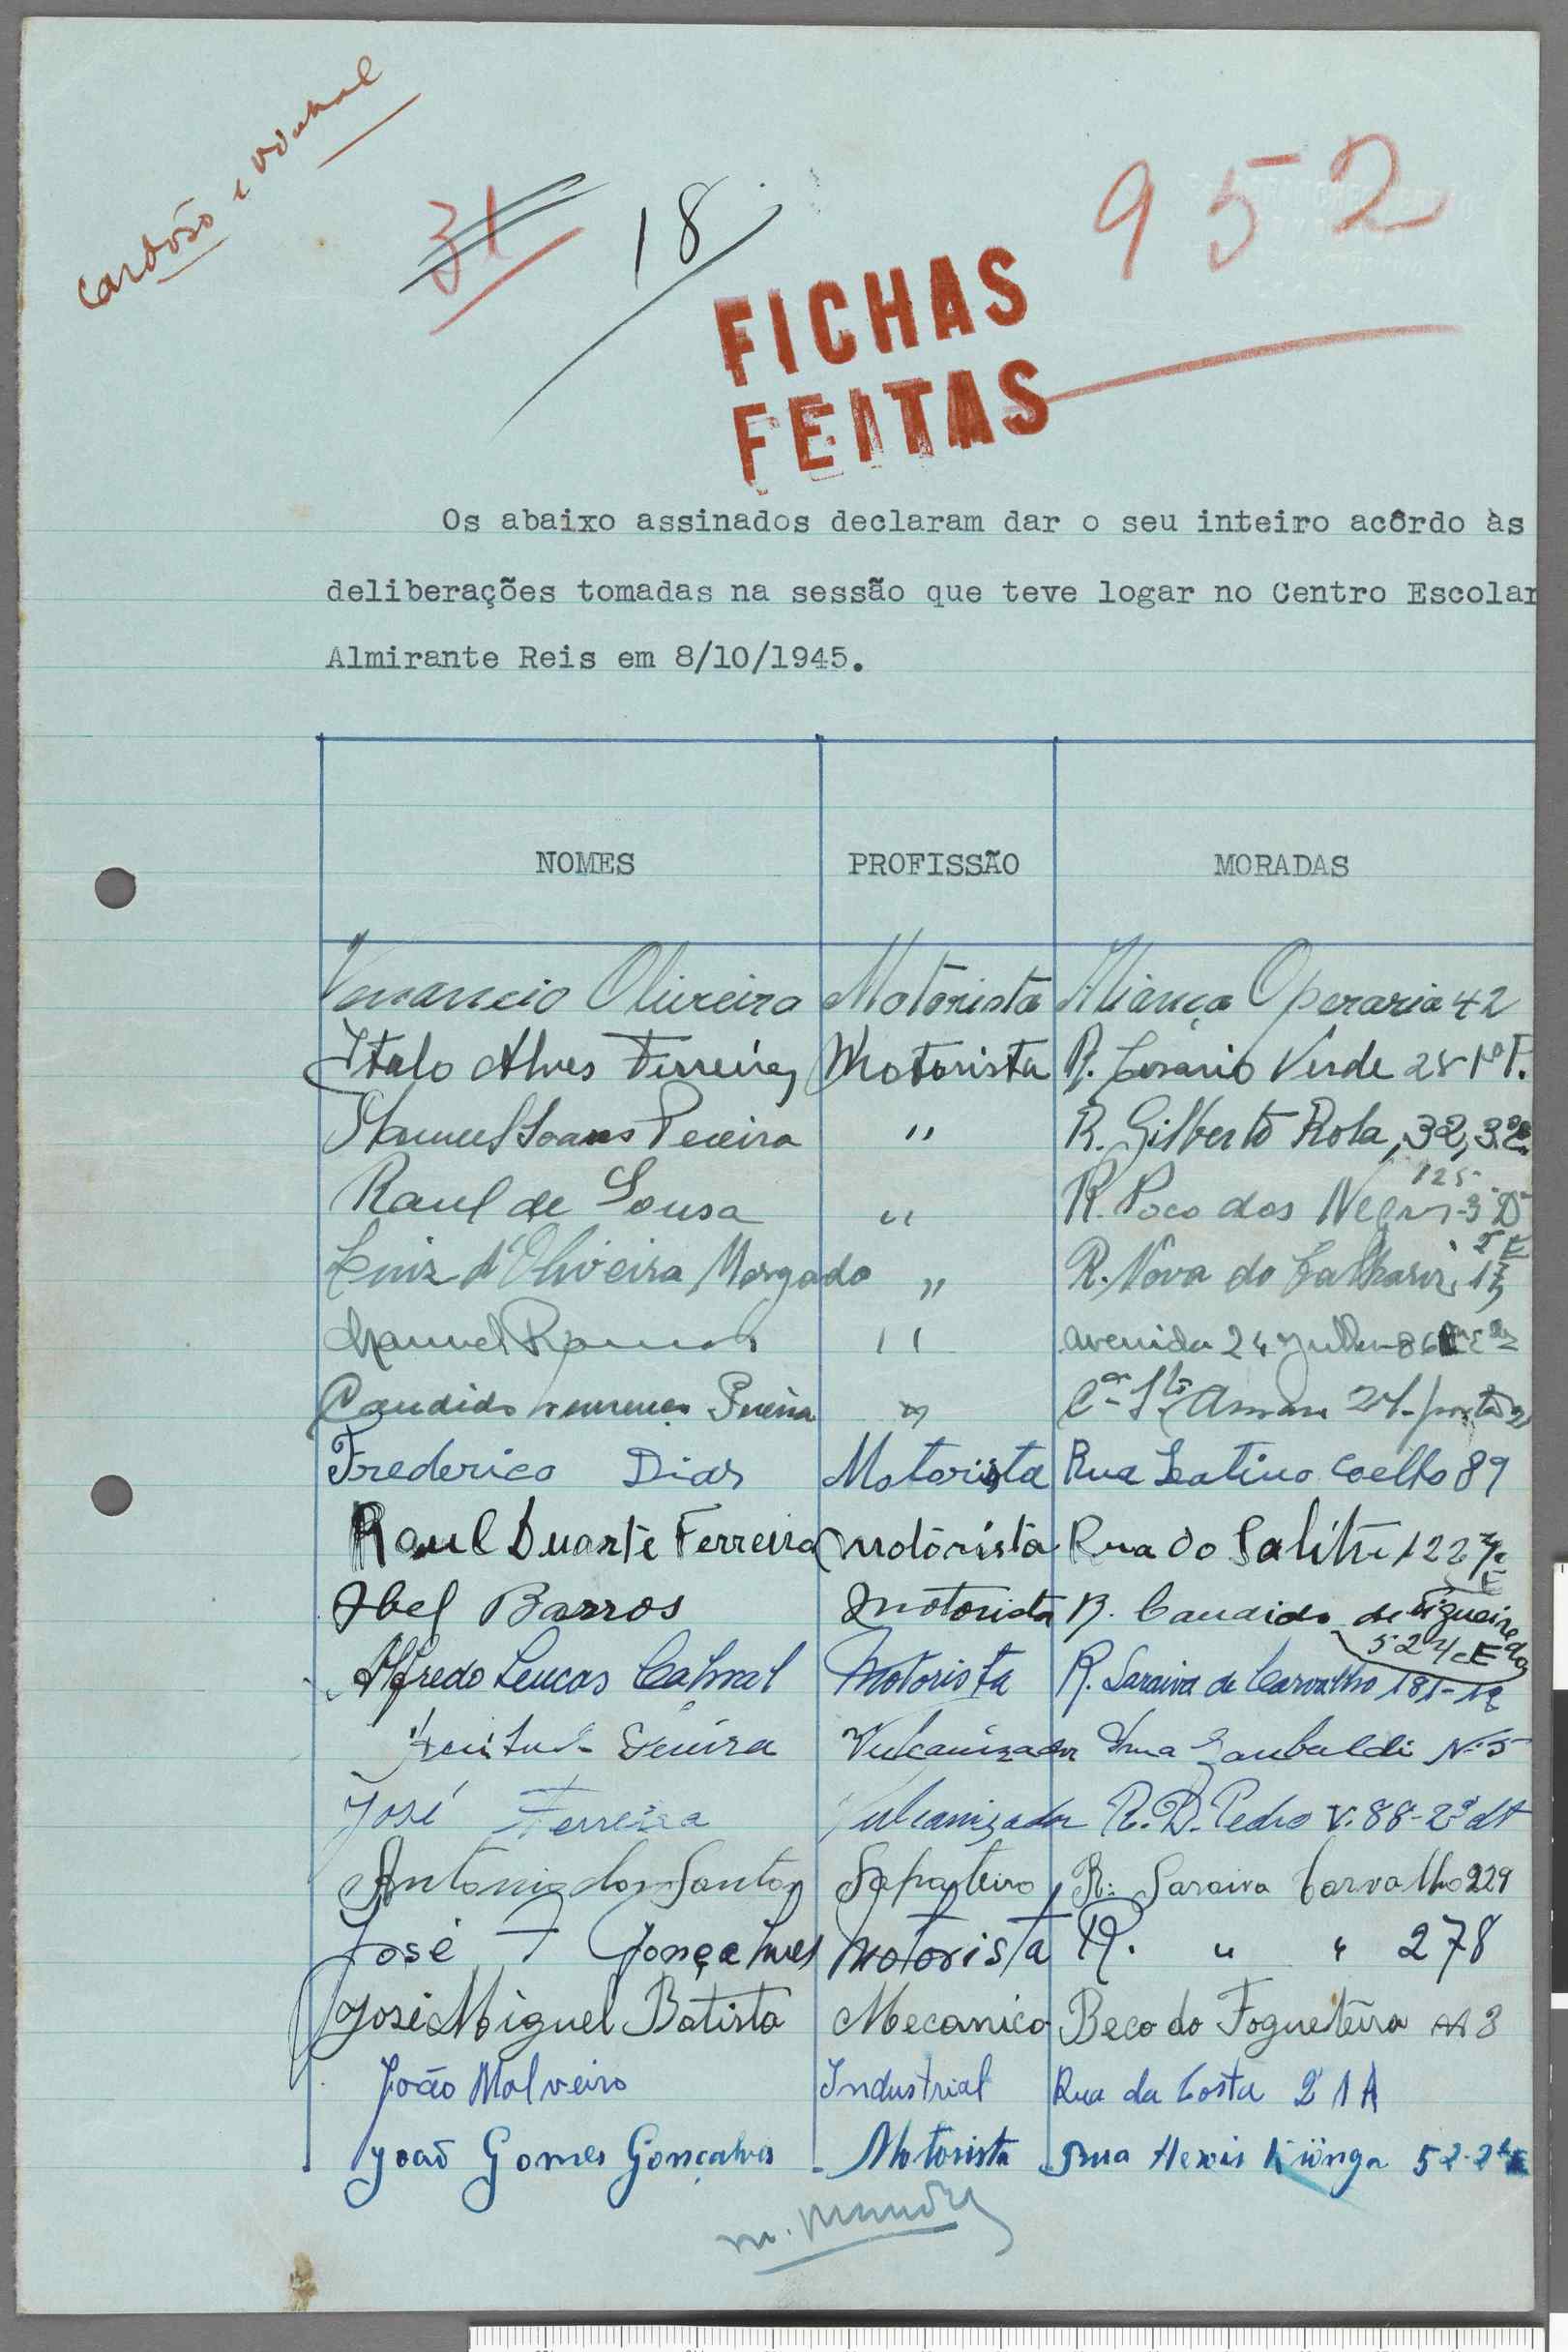 Cardoso e
31 18 952
FICHAS
FEITAS
Os abaixo assinados declaram dar o seu inteiro acôrdo às
deliberações tomadas na sessão que teve logar no Centro Escolar
Almirante Reis em 8/10/1945.
NOMES PROFISSÃO MORADAS
Venancio Oliveira Motorista Aliança Operaria 42
Italo Alves Ferreira Motorista R. Cesario Verde 28 1º
Manuel Soares Pereira " R. Gilberto Rola, 32, 3º
Raul de Sousa " R. Poco dos Negros 125 3º D
Luiz d'Oliveira Morgado " R. Nova do Calhariz
Manuel Ramos " avenida 24 Julho 86
Candido " Cª Stº Amaro porta
Frederico Dias Motorista Rua Latino Coelho 89
Raul Duarte Ferreira motorista Rua do Salitre 122
Abel Barros motorista R. Candido de Figueiredo
52 4º E
Alfredo Lucas Cabral Motorista R. Saraiva de Carvalho 181-
Vulcanizador Nº 5
José Ferreira Vulcanizador R. D. Pedro V. 88-2º dt
Antonio dos Santos Sapateiro R. Saraiva Carvalho 229
José F Gonçalves Motorista R. " " 278
José Miguel Batista Mecanico Beco do Fogueteiro 3
João Malveiro Industrial Rua da Costa 21A
João Gomes Gonçalves Motorista Rua Herois Kionga 52-2º E